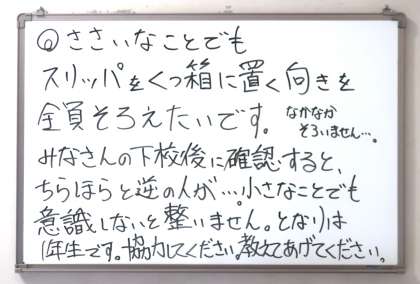 ◎ささいなことでも
スリッパをくつ箱に置く向きを
全員そろえたいです。なかなか
そろいません…。
みなさんの下校後に確認すると、
ちらほらと逆の人が…。小さなことでも
意識しないと整いません。となりは
1年生です。協力してください。教えてあげてください。